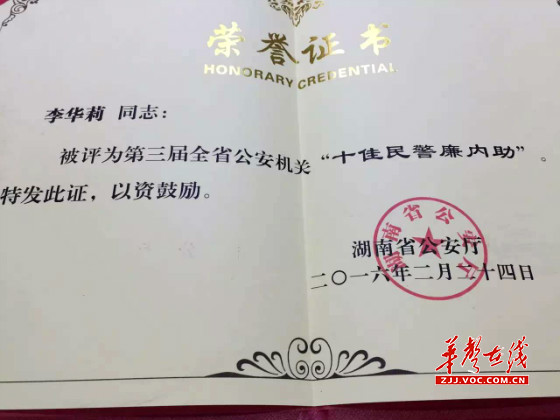 荣誉证书
HONORARY CREDENTIAL
李华莉 同志：
被评为第三届全省公安机关“十佳民警廉内助”。
特发此证，以资鼓励。
湖南省公安厅
湖南省公安厅
二〇一六年二月二十四日
华声在线
ZJJ.VOC.COM.CN